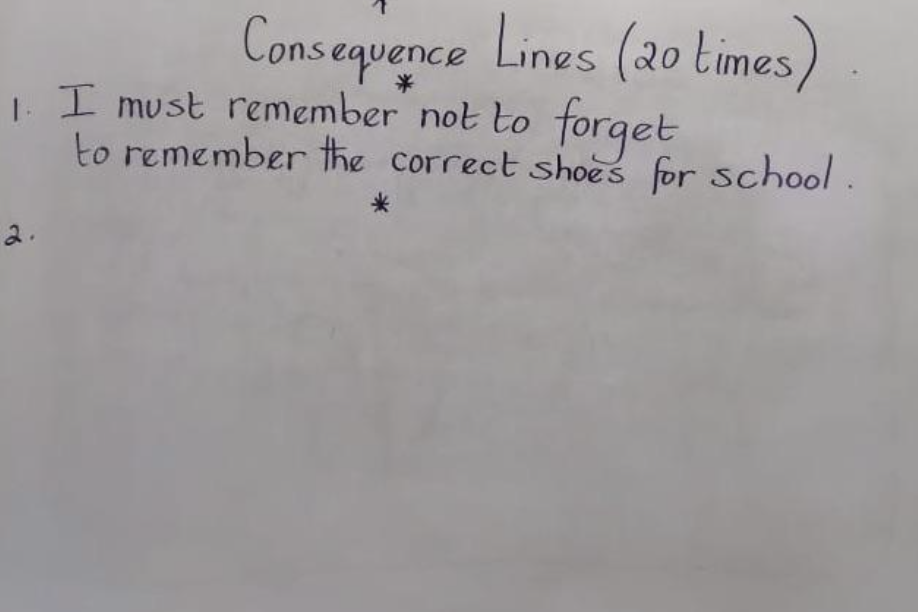 Consequence Lines (20 times).
*
1. I must remember not to forget
to remember the correct shoes for school.
*
2.